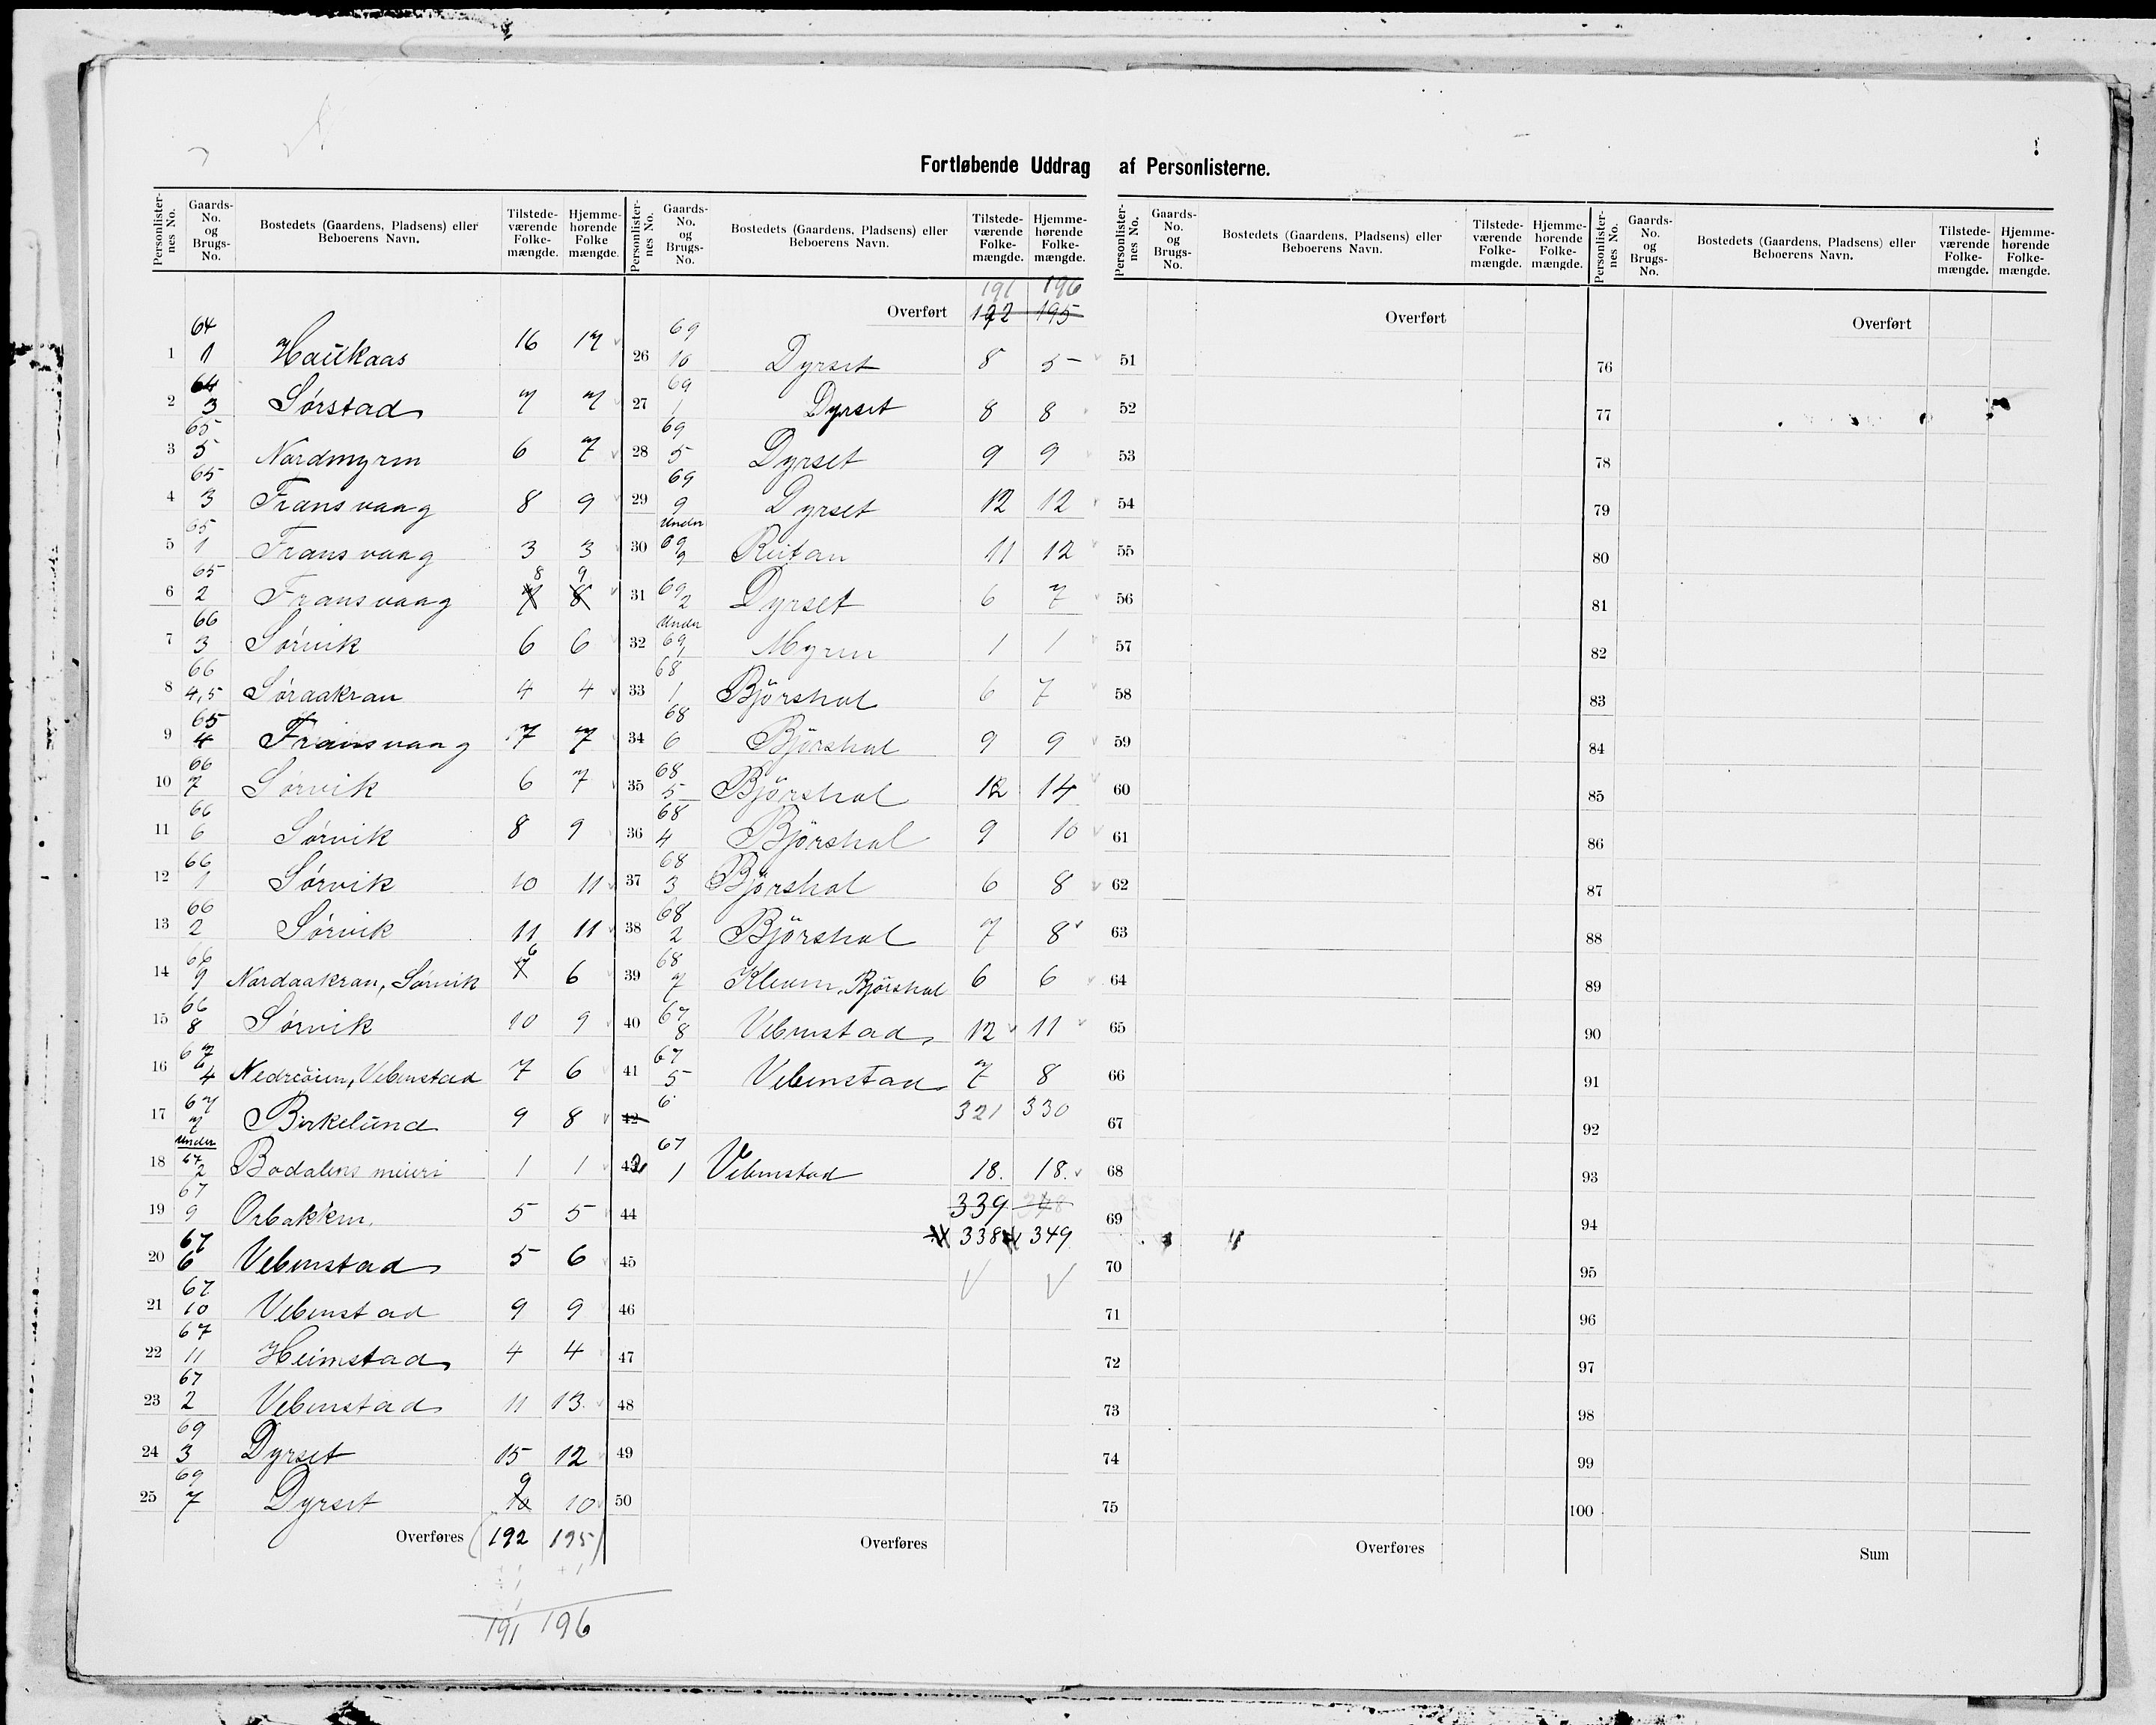 Fortløbende Uddrag af Personlisterne.
Personlisternes No. | Gaards-No. og Brugs-No. | Bostedets (Gaardens, Pladsens) eller Beboerens Navn. | Tilstedeværende Folkemængde. | Hjemmehørende Folkemængde.
1 | 64 1 | Haukaas | 16 | 17
2 | 64 3 | Sørstad | 7 | 7
3 | 65 5 | Nordmyren | 6 | 7
4 | 65 3 | Fransvaag | 8 | 9
5 | 65 1 | Fransvaag | 3 | 3
6 | 65 2 | Fransvaag | 7 8 | 8 9
7 | 66 3 | Sørvik | 6 | 6
8 | 66 4,5 | Søraakran | 4 | 4
9 | 65 4 | Fransvaag | 7 | 7
10 | 66 7 | Sørvik | 6 | 7
11 | 66 6 | Sørvik | 8 | 9
12 | 66 1 | Sørvik | 10 | 11
13 | 66 2 | Sørvik | 11 | 11
14 | 66 9 | Nordaakran, Sørvik | 7 6 | 6
15 | 66 8 | Sørvik | 10 | 9
16 | 67 4 | Nedreöien, Vebenstad | 7 | 6
17 | 67 7 | Birkelund | 9 | 8
18 | Under 67 2 | Bodalens meieri | 1 | 1
19 | 67 9 | Orbakken | 5 | 5
20 | 67 6 | Vebenstad | 5 | 6
21 | 67 10 | Vebenstad | 9 | 9
22 | 67 11 | Heimstad | 4 | 4
23 | 67 2 | Vebenstad | 11 | 13
24 | 69 3 | Dyrset | 15 | 12
25 | 69 7 | Dyrset | 10 9 | 10
Overføres (192 | 195)
191 196
Personlisternes No. | Gaards-No. og Brugs-No. | Bostedets (Gaardens, Pladsens) eller Beboerens Navn. | Tilstedeværende Folkemængde. | Hjemmehørende Folkemængde.
191 | 196
Overført 192 | 195
26 | 69 10 | Dyrset | 8 | 5
27 | 69 1 | Dyrset | 8 | 8
28 | 69 5 | Dyrset | 9 | 9
29 | 69 9 | Dyrset | 12 | 12
30 | Under 69 9 | Rutan | 11 | 12
31 | 69 2 | Dyrset | 6 | 7
32 | Under 69 1 | Myren | 1 | 1
33 | 68 1 | Björshol | 6 | 7
34 | 68 6 | Björshol | 9 | 9
35 | 68 5 | Björshol | 12 | 14
36 | 68 4 | Björshol | 9 | 10
37 | 68 3 | Björshol | 6 | 8
38 | 68 2 | Björshol | 7 | 8
39 | 68 7 | Kleven, Björshol | 6 | 6
40 | 67 8 | Vebenstad | 12 | 11
41 | 67 5 | Vebenstad | 7 | 8
42 | 6 | 321 | 330
42 | 67 1 | Vebenstad | 18. | 18.
44 | 339 | 348
338 | 349
45
46
47
48
49
50
Overføres
Personlisternes No. | Gaards-No. og Brugs-No. | Bostedets (Gaardens, Pladsens) eller Beboerens Navn. | Tilstedeværende Folkemængde. | Hjemmehørende Folkemængde.
Overført
51
52
53
54
55
56
57
58
59
60
61
62
63
64
65
66
67
68
69
70
71
72
73
74
75
Overføres
Personlisternes No. | Gaards-No. og Brugs-No. | Bostedets (Gaardens, Pladsens) eller Beboerens Navn. | Tilstedeværende Folkemængde. | Hjemmehørende Folkemængde.
Overført
76
77
78
79
80
81
82
83
84
85
86
87
88
89
90
91
92
93
94
95
96
97
98
99
100
Sum